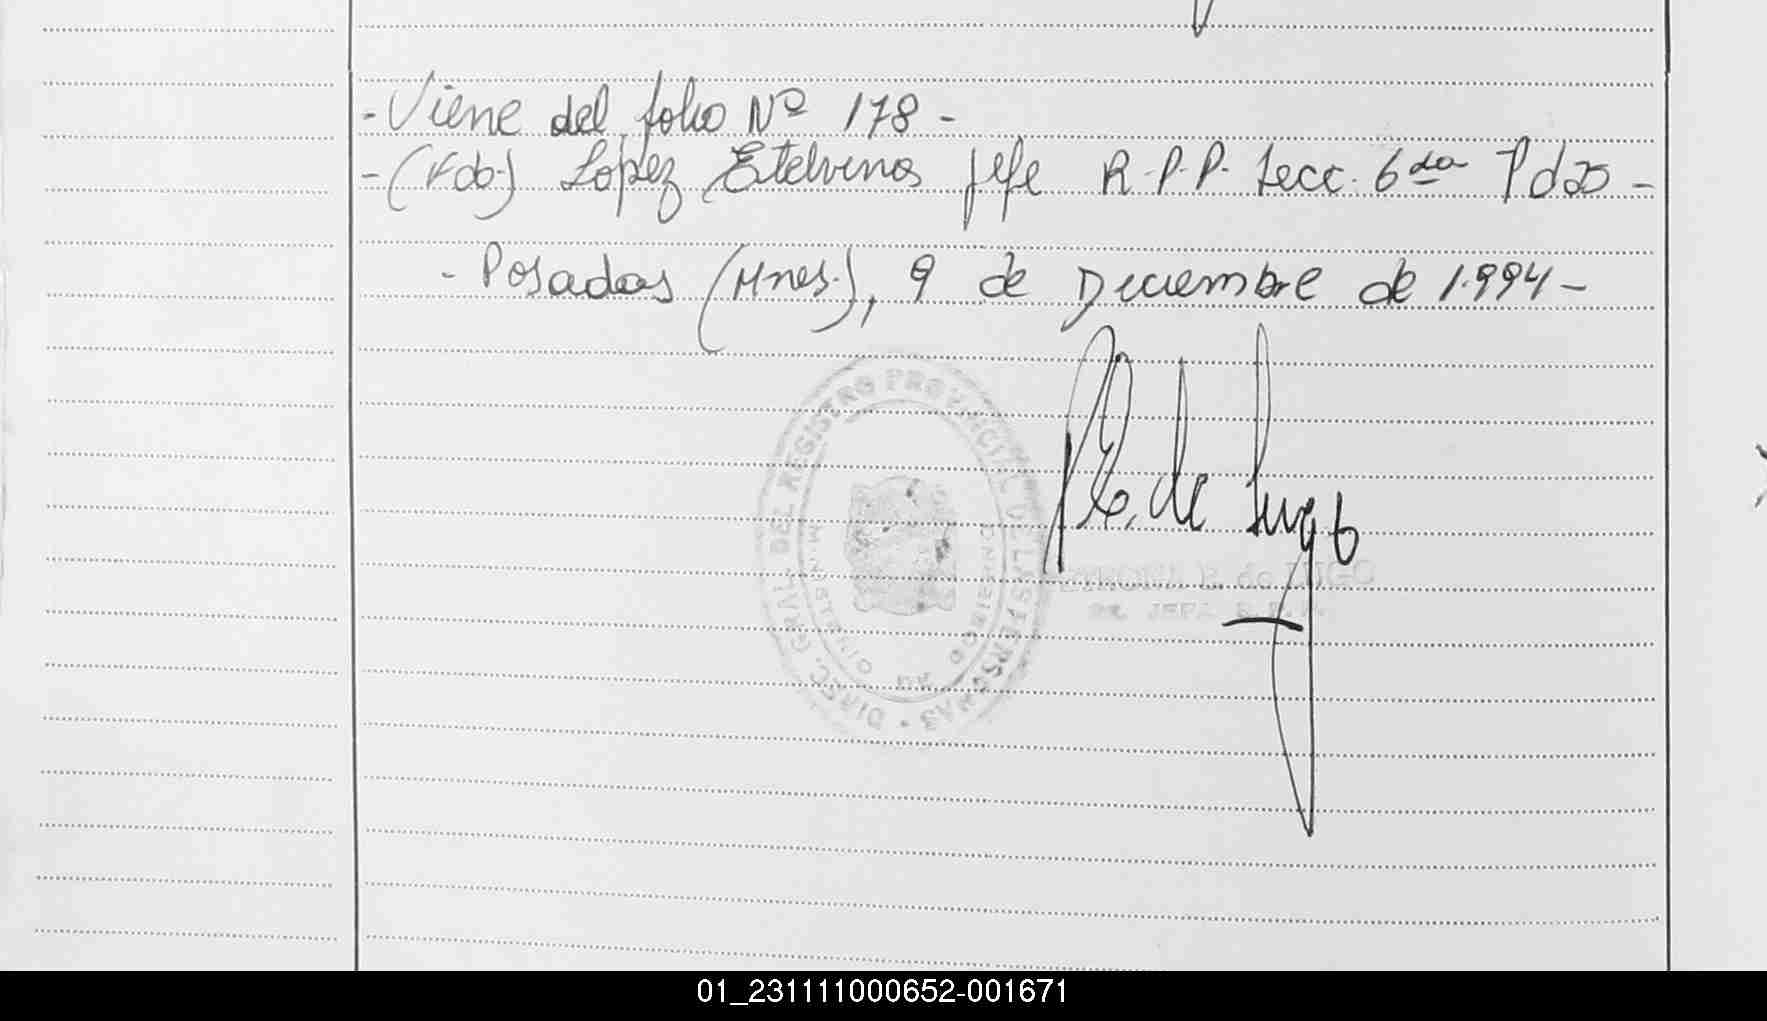 - Viene del folio Nº 178 -
- (Fdo.) Lopez Etelvina Jefe R.P.P. Secc. 6ta Pdas -
- Posadas (Mnes.), 9 de Diciembre de 1.994 -
E. de Lugo
DIREC. GRAL. DEL REGISTRO PROVINCIAL DE LAS PERSONAS
MINISTERIO DE GOBIERNO
E. de LUGO
JEFA R.P.P.
01_231111000652-001671